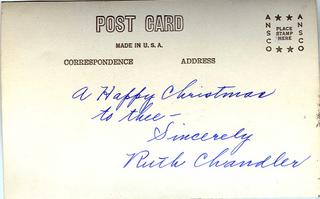 POST CARD
MADE IN U.S.A.
CORRESPONDENCE ADDRESS
ANSCO PLACE STAMP HERE ANSCO
A Happy Christmas
to thee -
Sincerely
Ruth Chandler